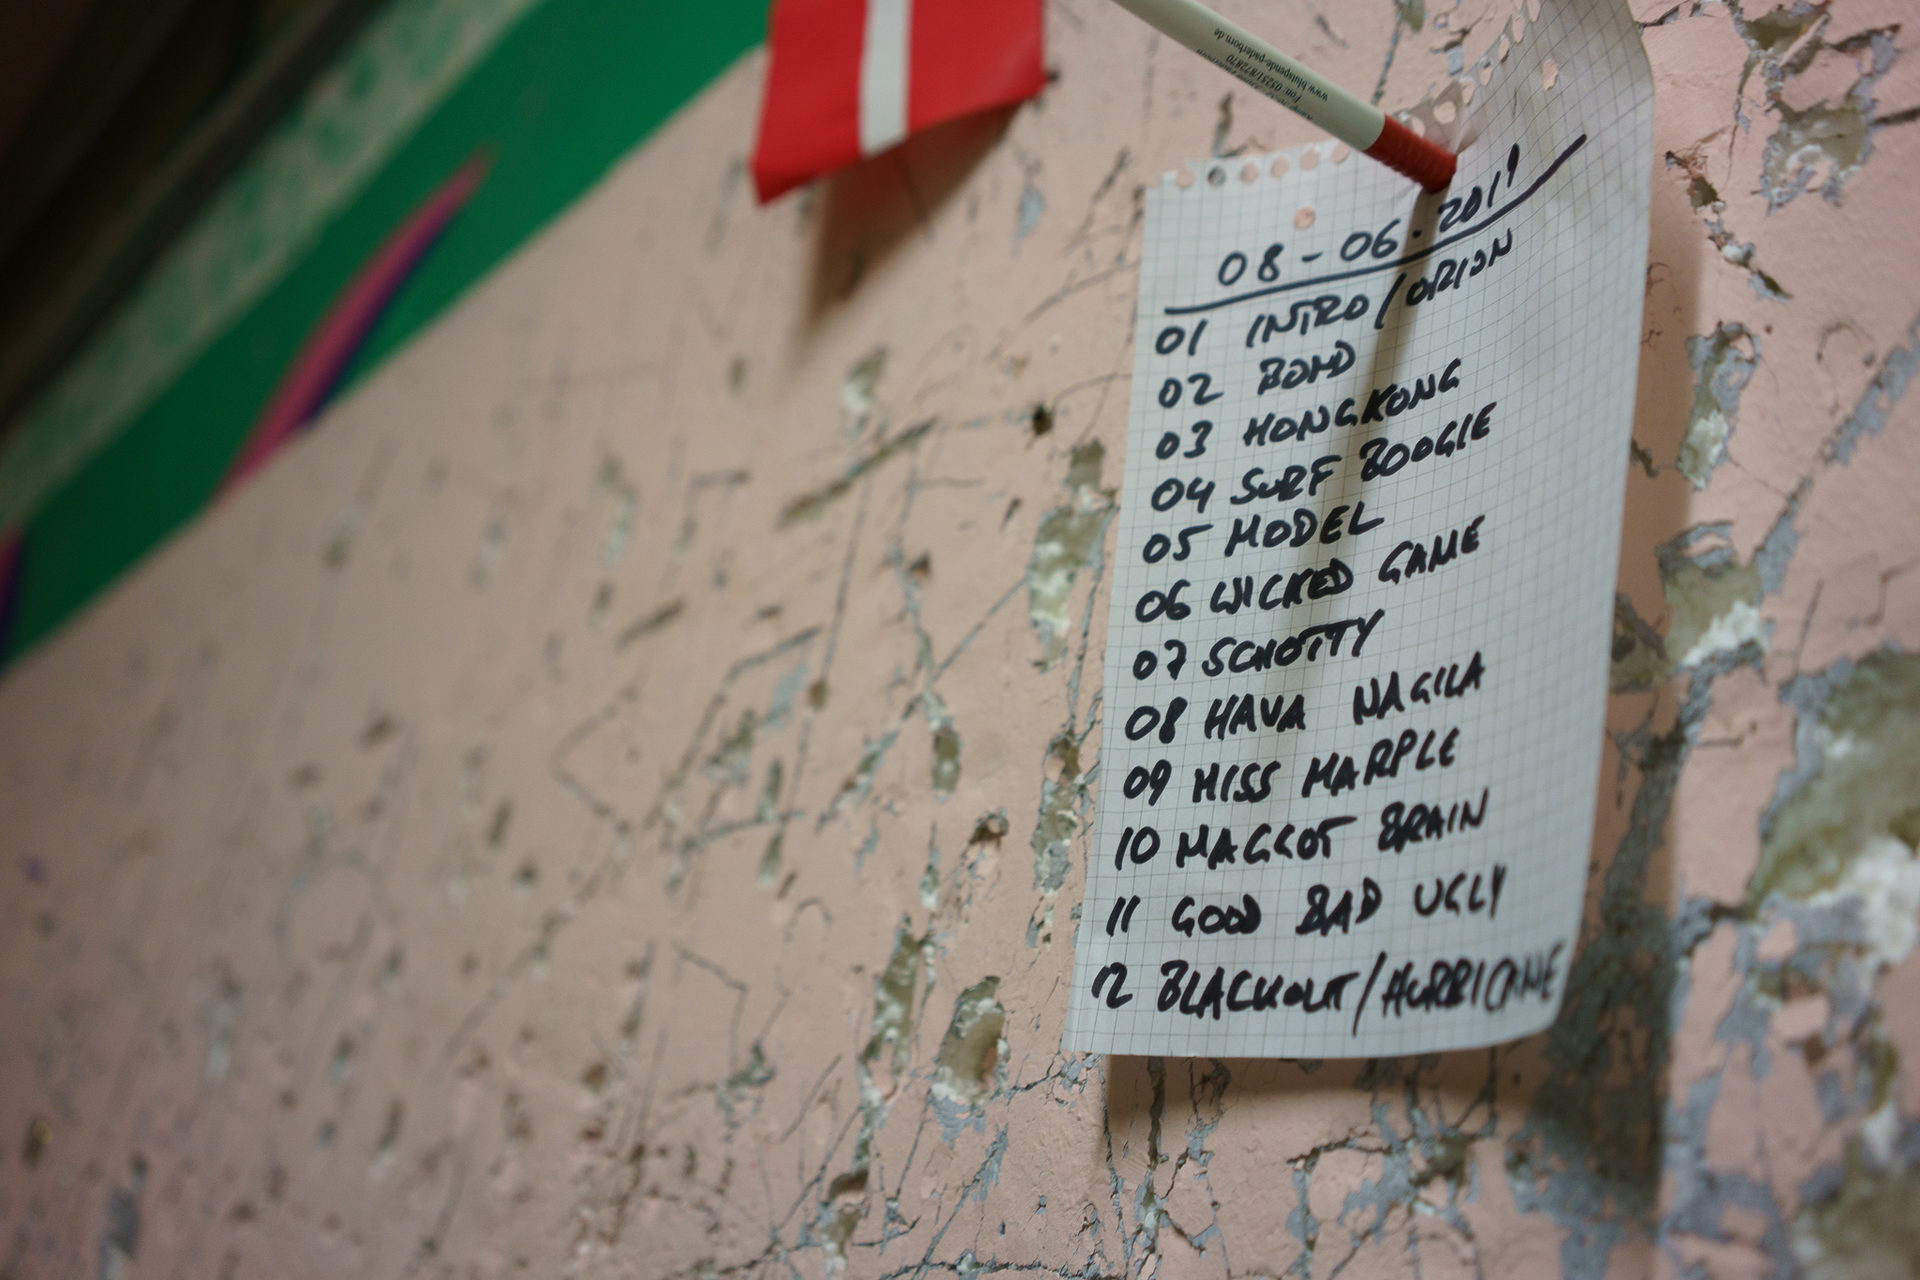 www.blutspende-paderborn.de
Fon: 05251/872870
08-06.2011
01 INTRO/ORION
02 BOND
03 HONGKONG
04 SURF BOOGIE
05 MODEL
06 WICKED GAME
07 SCHOTTY
08 HAVA NAGILA
09 MISS MARPLE
10 MAGGOT BRAIN
11 GOOD BAD UGLY
12 BLACKOUT/HURRICANE